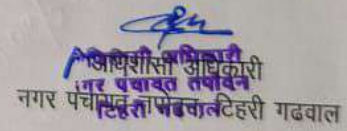 अधिशासी अधिकारी
नगर पंचायत तपोवन टिहरी गढवाल
अधिशासी अधिकारी
नगर पंचायत तपोवन
टिहरी गढवाल